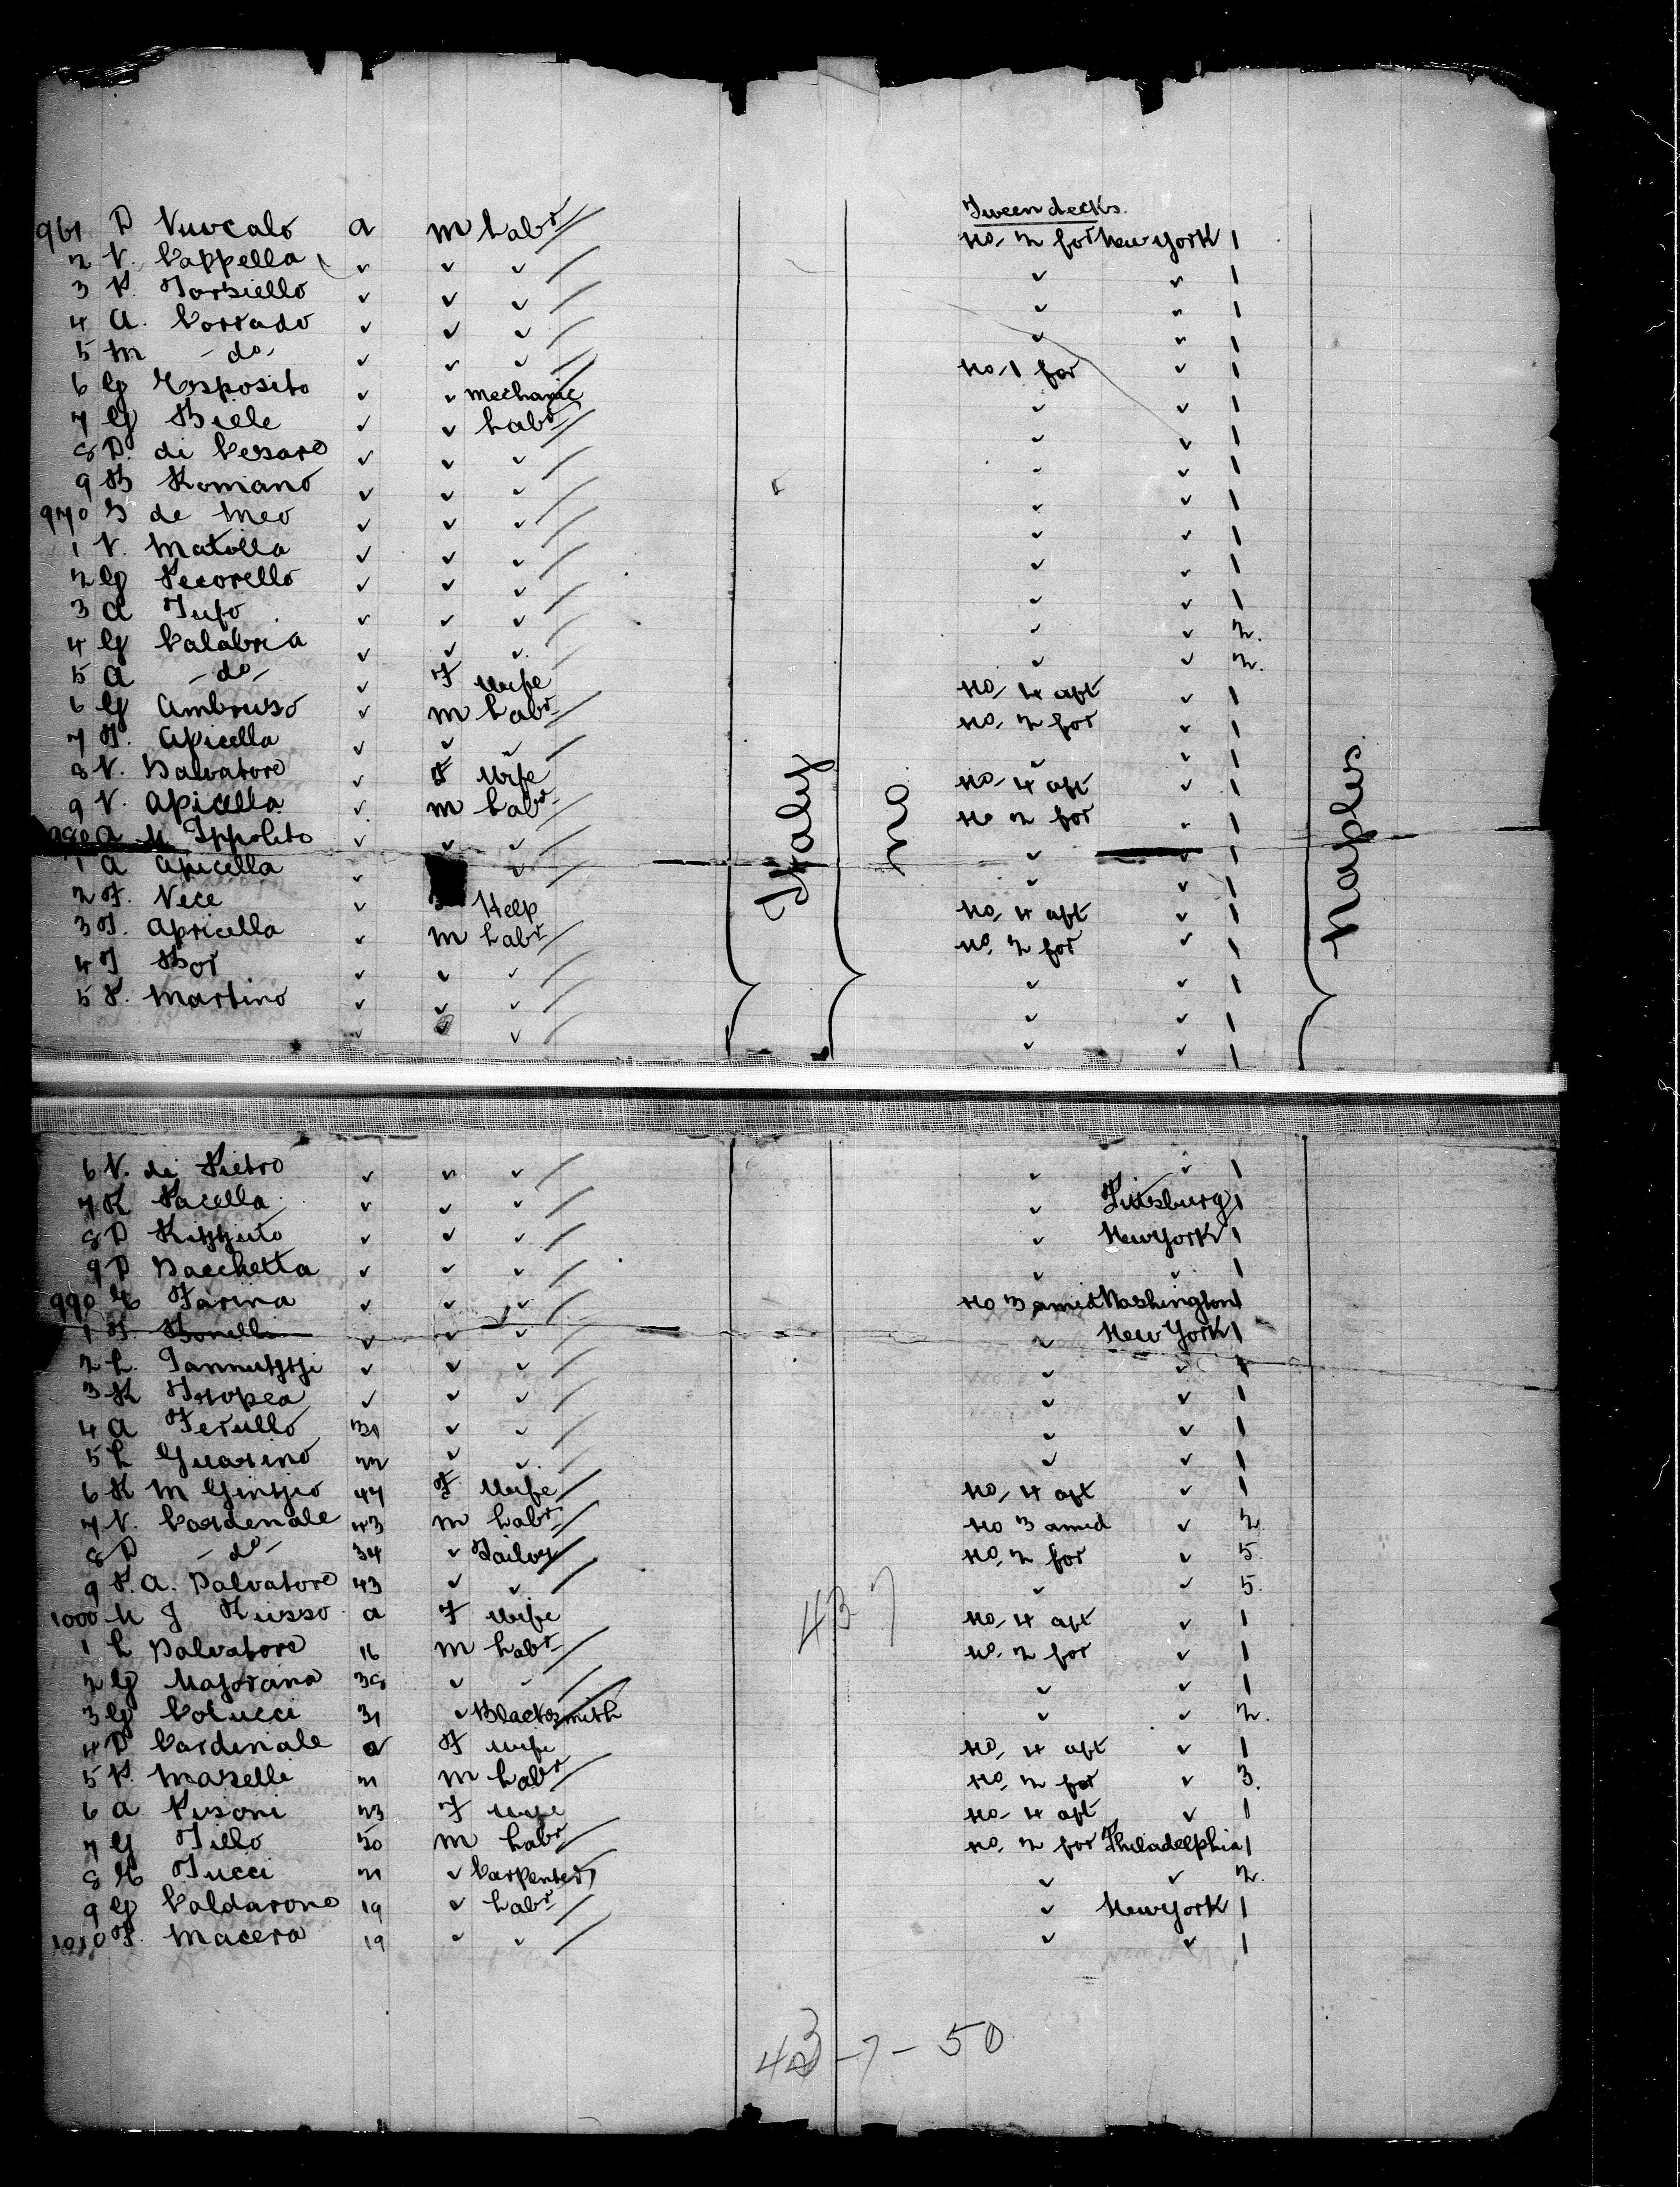 Tween decks.
961 D Nuvcalo a m Labr No. 2 for New York 1
2 V. Cappella ✓ ✓ ✓ ✓ ✓ 1
3 P. Torsiello ✓ ✓ ✓ ✓ ✓ 1
4 A. Corrado ✓ ✓ ✓ ✓ ✓ 1
5 M -do- ✓ ✓ ✓ No. 1 for ✓ 1
6 G Esposito ✓ ✓ Mechanic ✓ ✓ 1
7 G Biele ✓ ✓ Labr ✓ ✓ 1
8 D. di Cesare ✓ ✓ ✓ ✓ ✓ 1
9 B Romano ✓ ✓ ✓ ✓ ✓ 1
970 S de Meo ✓ ✓ ✓ ✓ ✓ 1
1 V. Matolla ✓ ✓ ✓ ✓ ✓ 1
2 G Pecorello ✓ ✓ ✓ ✓ ✓ 1
3 A Tufo ✓ ✓ ✓ ✓ ✓ 2.
4 G Calabria ✓ ✓ ✓ ✓ ✓ 2.
5 A -do- ✓ F Wife No. 4 aft ✓ 1
6 G Ambruso ✓ m Labr No. 2 for ✓ 1
7 F. Apicella ✓ ✓ ✓ ✓ ✓ 1
8 V. Salvatore ✓ F Wife No. 4 aft ✓ 1
9 V. Apicella ✓ m Labr No 2 for ✓ 1
980 A M Ippolito ✓ ✓ ✓ ✓ ✓ 1
1 A Apicella ✓ ✓ ✓ ✓ 1
2 F. Vece ✓ Help No. 4 aft ✓ 1
3 F. Apicella ✓ m Labr No. 2 for ✓ 1
4 F Bor ✓ ✓ ✓ ✓ ✓ 1
5 P. Martino ✓ ✓ ✓ ✓ ✓ 1
✓ ✓ ✓ ✓ 1
Italy
no
Naples
6 V. di Pietro ✓ ✓ ✓ ✓ ✓ 1
7 R Pacella ✓ ✓ ✓ ✓ Pittsburg 1
8 D Rizzuto ✓ ✓ ✓ ✓ New York 1
9 D Sacchetta ✓ ✓ ✓ ✓ ✓ 1
990 E Farina ✓ ✓ ✓ No 3 amid Washington 1
1 F. Bonelli ✓ ✓ ✓ ✓ New York 1
2 L. Iannuzzi ✓ ✓ ✓ ✓ ✓ 1
3 R Tropea ✓ ✓ ✓ ✓ ✓ 1
4 A Ferullo 31 ✓ ✓ ✓ ✓ 1
5 L Guarino 22 ✓ ✓ ✓ ✓ 1
6 R M Ginzio 47 F Wife No. 4 aft ✓ 1
7 V. Cardenale 43 m Labr No 3 amid ✓ 2
8 D -do- 34 ✓ Tailor No. 2 for ✓ 5.
9 P. A. Salvatore 43 ✓ ✓ ✓ ✓ 5.
1000 M G Russo a F Wife No. 4 aft ✓ 1
1 L Salvatore 16 m Labr No. 2 for ✓ 1
2 G Majorana 38 ✓ ✓ ✓ ✓ 1
3 G Colucci 31 ✓ Blacksmith ✓ ✓ 2.
4 D Cardinale a F Wife No. 4 aft ✓ 1
5 P. Maselli 21 m Labr No. 2 for ✓ 3.
6 A Pisoni 23 F Wife No. 4 aft ✓ 1
7 G Tillo 50 m Labr No. 2 for Philadelphia 1
8 E Tucci 21 ✓ Carpenter ✓ ✓ 2.
9 G Caldarone 19 ✓ Labr ✓ New York 1
1010 F. Macera 19 ✓ ✓ ✓ ✓ 1
43 7
43-7-50